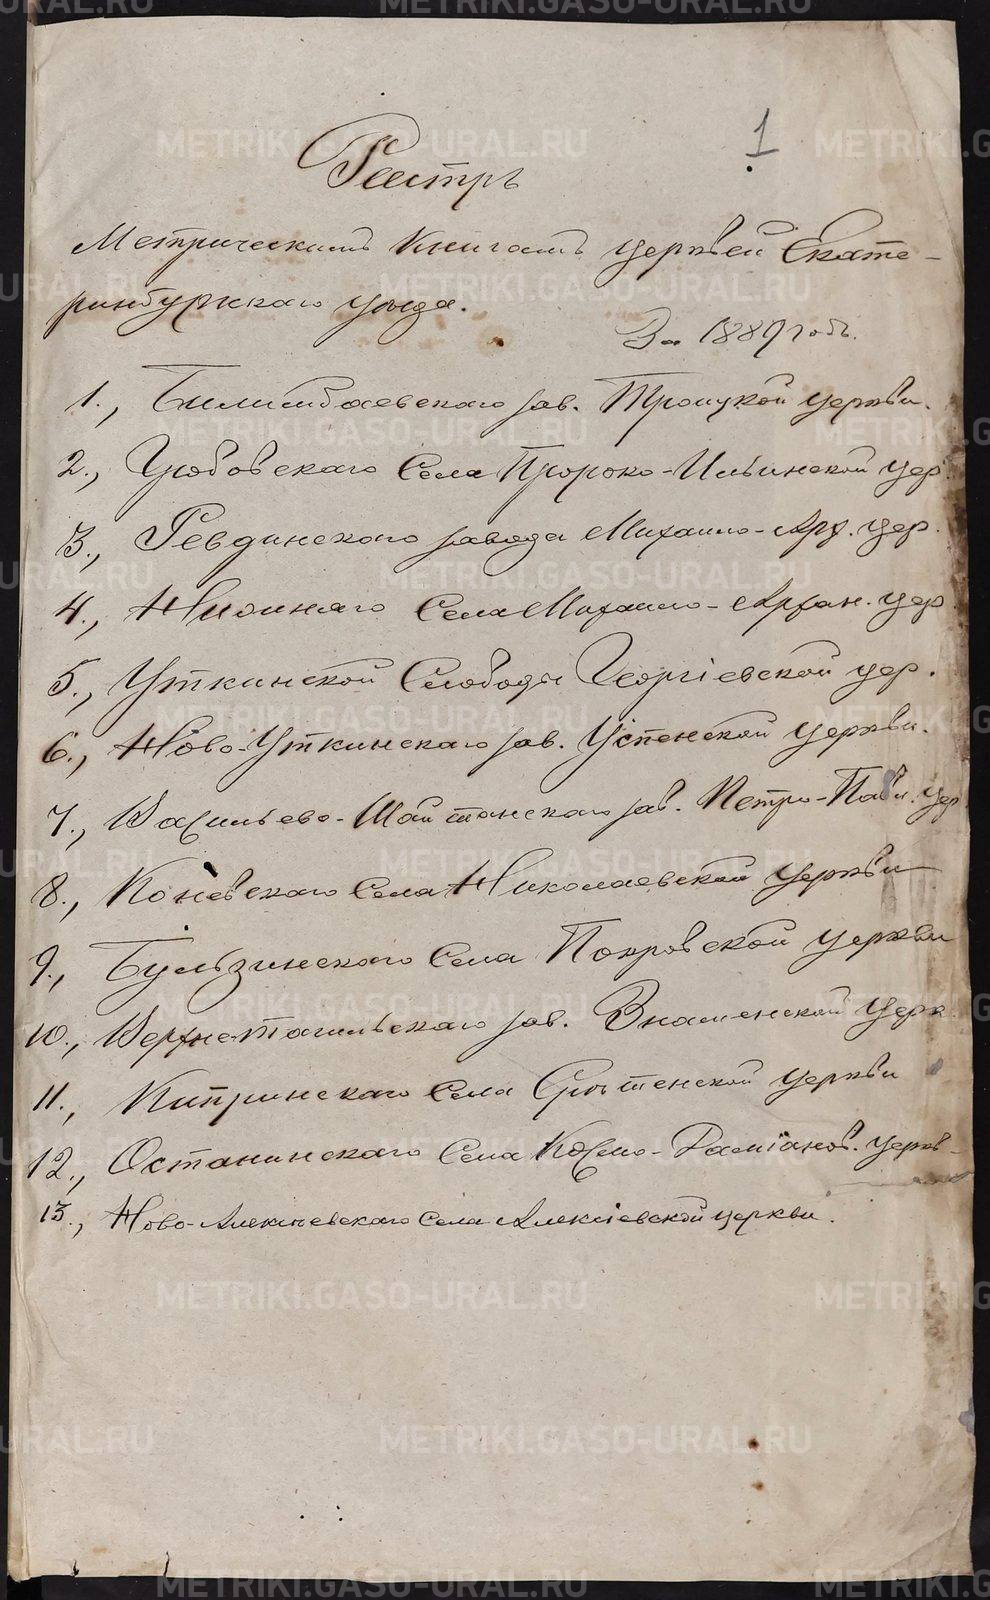 1
Реестръ
Метрическимъ Книгамъ церквей Екате-
ринбургскаго уѣзда.
За 1889 годъ.
1., Билимбаевскаго зав. Троицкой церкви.
2., Гробовскаго Села Пророко-Ильинской цер.
3., Ревдинскаго завода Михаило-Арх. цер.
4., Нижняго Села Михаило-Архан. цер.
5., Уткинской Слободы Георгіевской цер.
6., Ново-Уткинскаго зав. Успенской церкви.
7., Васильево-Шайтанскаго зав. Петро-Павл. цер
8., Коневскаго Села Николаевской церкви
9., Бызинскаго Села Покровской церкви
10., Верхне-Тагильскаго зав. Знаменской церк
11., Кипринскаго Села Срѣтенской церкви
12., Останинскаго Села Космо-Даміанов. церкв-
13., Ново-Алексѣевскаго Села Алексіевской церкви.
METRIKI.GASO-URAL.RU